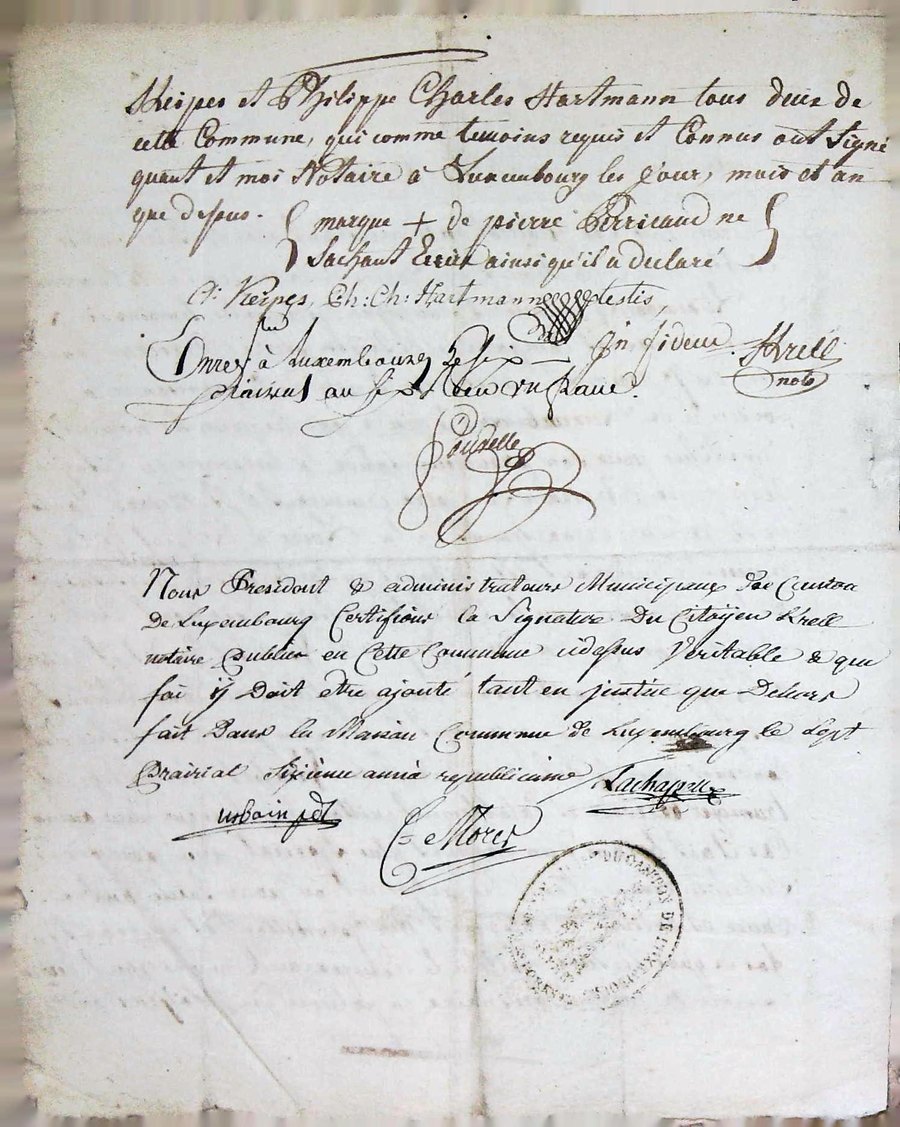 Keipes et Philippe Charles Hartmann tous deux de
cette Commune, qui comme temoins requis et Connus ont Signé
quant et moi Notaire a Luxembourg les jour, mois et an
que dessus. marque + de pierre Perricaud ne
Sachant Ecrire ainsi qu'il a declaré
Keipes, Ph: Ch: Hartmann testis,
Enreg. à Luxembourg le six
In fidem. JKrell
prairial an six un franc.
not.
Nous President & administrateurs Municipaux du Canton
de Luxembourg Certifions la Signature Du Citoÿen Krell
notaire Publicq en Cette Commune cidessus Veritable & que
foi ÿ Doit etre ajouté tant en justice que Dehors
fait Dans la Maison Commune de Luxembourg le Sept
Prairial Sixieme année republicaine
Lachapelle
urbain pdt
C. Mores
DU CANTON DE LUXEMBOURG